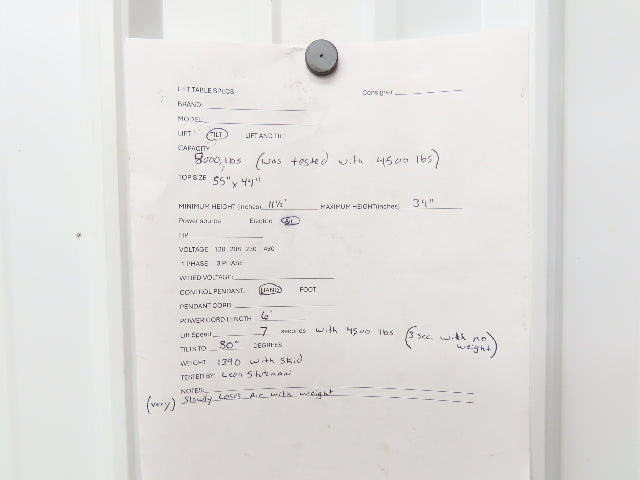 LIFT TABLE SPECS Consigner
BRAND:
MODEL:
LIFT TILT LIFT AND TILT
CAPACITY
8000 lbs (was tested with 4500 lbs)
TOP SIZE 55" x 44"
MINIMUM HEIGHT (inches) 11½" MAXIMUM HEIGHT(inches) 34"
Power source Electric Air
HP
VOLTAGE 120 208 230 460
1 PHASE 3 PHASE
WIRED VOLTAGE:
CONTROL PENDANT: HAND FOOT
PENDANT CORD
POWER CORD LENGTH 6'
Lift Speed 7 seconds with 4500 lbs (3 sec with no weight)
TILTS TO 80° DEGREES
WEIGHT 1390 with skid
TESTED BY: Leon
NOTES:
(very) Slowly Loses Air with weight